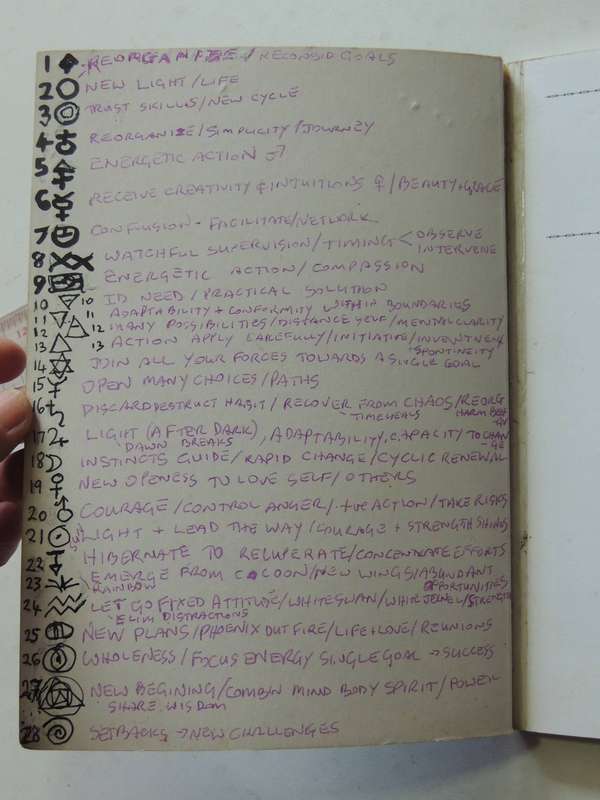 1 REORGANIZE / RECONSID GOALS
2 NEW LIGHT / LIFE
3 TRUST SKILLS / NEW CYCLE
4 REORGANIZE / SIMPLICITY / JOURNEY
5 ENERGETIC ACTION ♂
6 RECEIVE CREATIVITY ♀ INTUITIONS ♀ / BEAUTY + GRACE
7 CONFUSION - FACILITATE / NETWORK
8 WATCHFUL SUPERVISION / TIMING < OBSERVE
INTERVENE
9 ENERGETIC ACTION / COMPASSION
10 10 ID NEED / PRACTICAL SOLUTION
11 11 ADAPTABILITY + CONFORMITY WITHIN BOUNDARIES
12 12 MANY POSSIBILITIES / DISTANCE SELF / MENTAL CLARITY
13 13 ACTION APPLY CAREFULLY / INITIATIVE / INVENTIVE
SPONTINEITY
14 JOIN ALL YOUR FORCES TOWARDS A SINGLE GOAL
15 OPEN MANY CHOICES / PATHS
16 DISCARD DESTRUCT HABIT / RECOVER FROM CHAOS / REORG
TIME HEALS
17 LIGHT (AFTER DARK), ADAPTABILITY, CAPACITY TO CHANGE
DAWN BREAKS
18 INSTINCTS GUIDE / RAPID CHANGE / CYCLIC RENEWAL
19 NEW OPENESS TO LOVE SELF / OTHERS
20 COURAGE / CONTROL ANGER / +ve ACTION / TAKE RISKS
21 LIGHT + LEAD THE WAY / COURAGE + STRENGTH SHINES
22 HIBERNATE TO RECUPERATE / CONCENTRATE EFFORTS
23 EMERGE FROM COCOON / NEW WINGS / ABUNDANT
RAINBOW OPPORTUNITIES
24 LET GO FIXED ATTITUDE / WHITE SWAN / WHIRLWIND / STRENGTH
ELIM DISTRACTIONS
25 NEW PLANS / PHOENIX OUT FIRE / LIFE + LOVE / REUNIONS
26 WHOLENESS / FOCUS ENERGY SINGLE GOAL → SUCCESS
27 NEW BEGINING / COMBIN MIND BODY SPIRIT / POWER
SHARE WISDOM
28 SETBACKS → NEW CHALLENGES